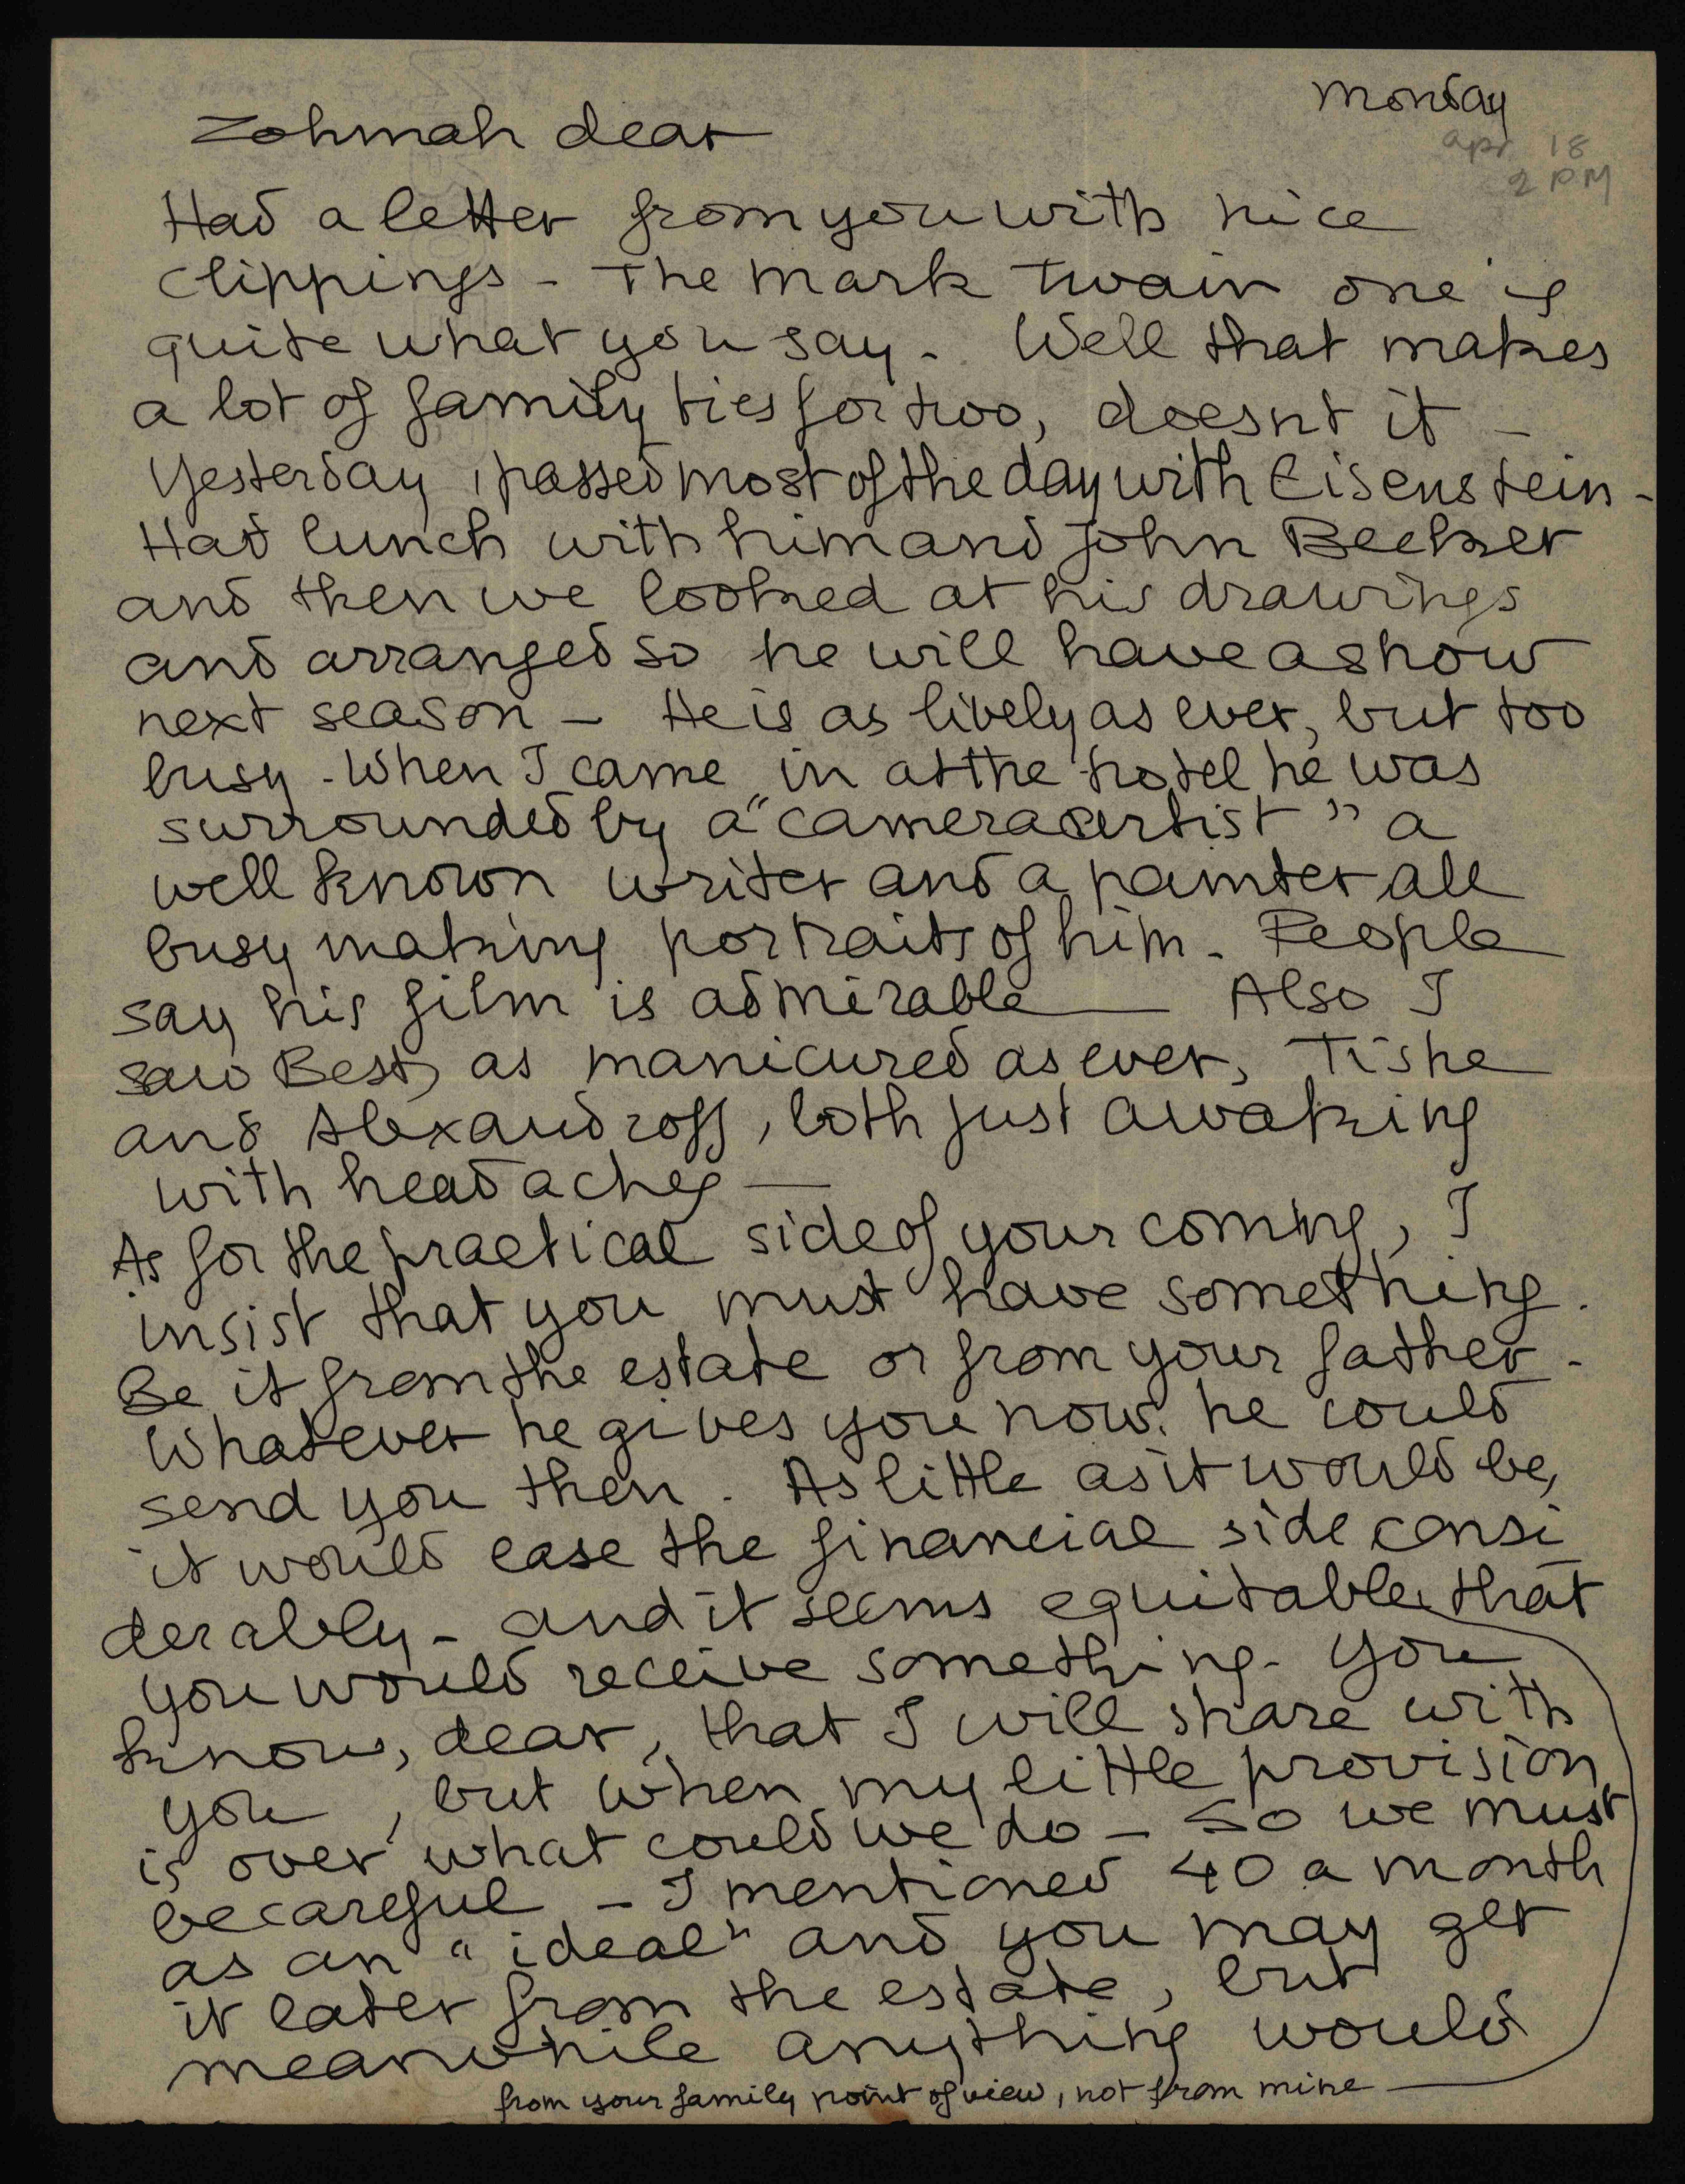 Monday
Apr 18
2 PM
Zohmah dear
Had a letter from you with nice
clippings - The Mark Twain one is
quite what you say - Well that makes
a lot of family ties for two, doesnt it -
Yesterday I passed most of the day with Eisenstein -
Had lunch with him and John Becker
and then we looked at his drawings
and arranged so he will have a show
next season - He is as lively as ever, but too
busy - When I came in at the hotel he was
surrounded by a "camera artist" a
well known writer and a painter all
busy making portraits of him - People
say his film is admirable — Also I
saw Best, as manicured as ever, Tishe
and Alexandroff, both just awaking
with headaches —
As for the practical side of your coming, I
insist that you must have something.
Be it from the estate or from your father -
Whatever he gives you now he could
send you then. As little as it would be,
it would ease the financial side consi
derably - and it seems equitable that
you would receive something - You
know, dear, that I will share with
you, but when my little provision
is over what could we do - So we must
be careful - I mentioned 40 a month
as an "ideal" and you may get
it later from the estate, but
meanwhile anything would
from your family point of view, not from mine —